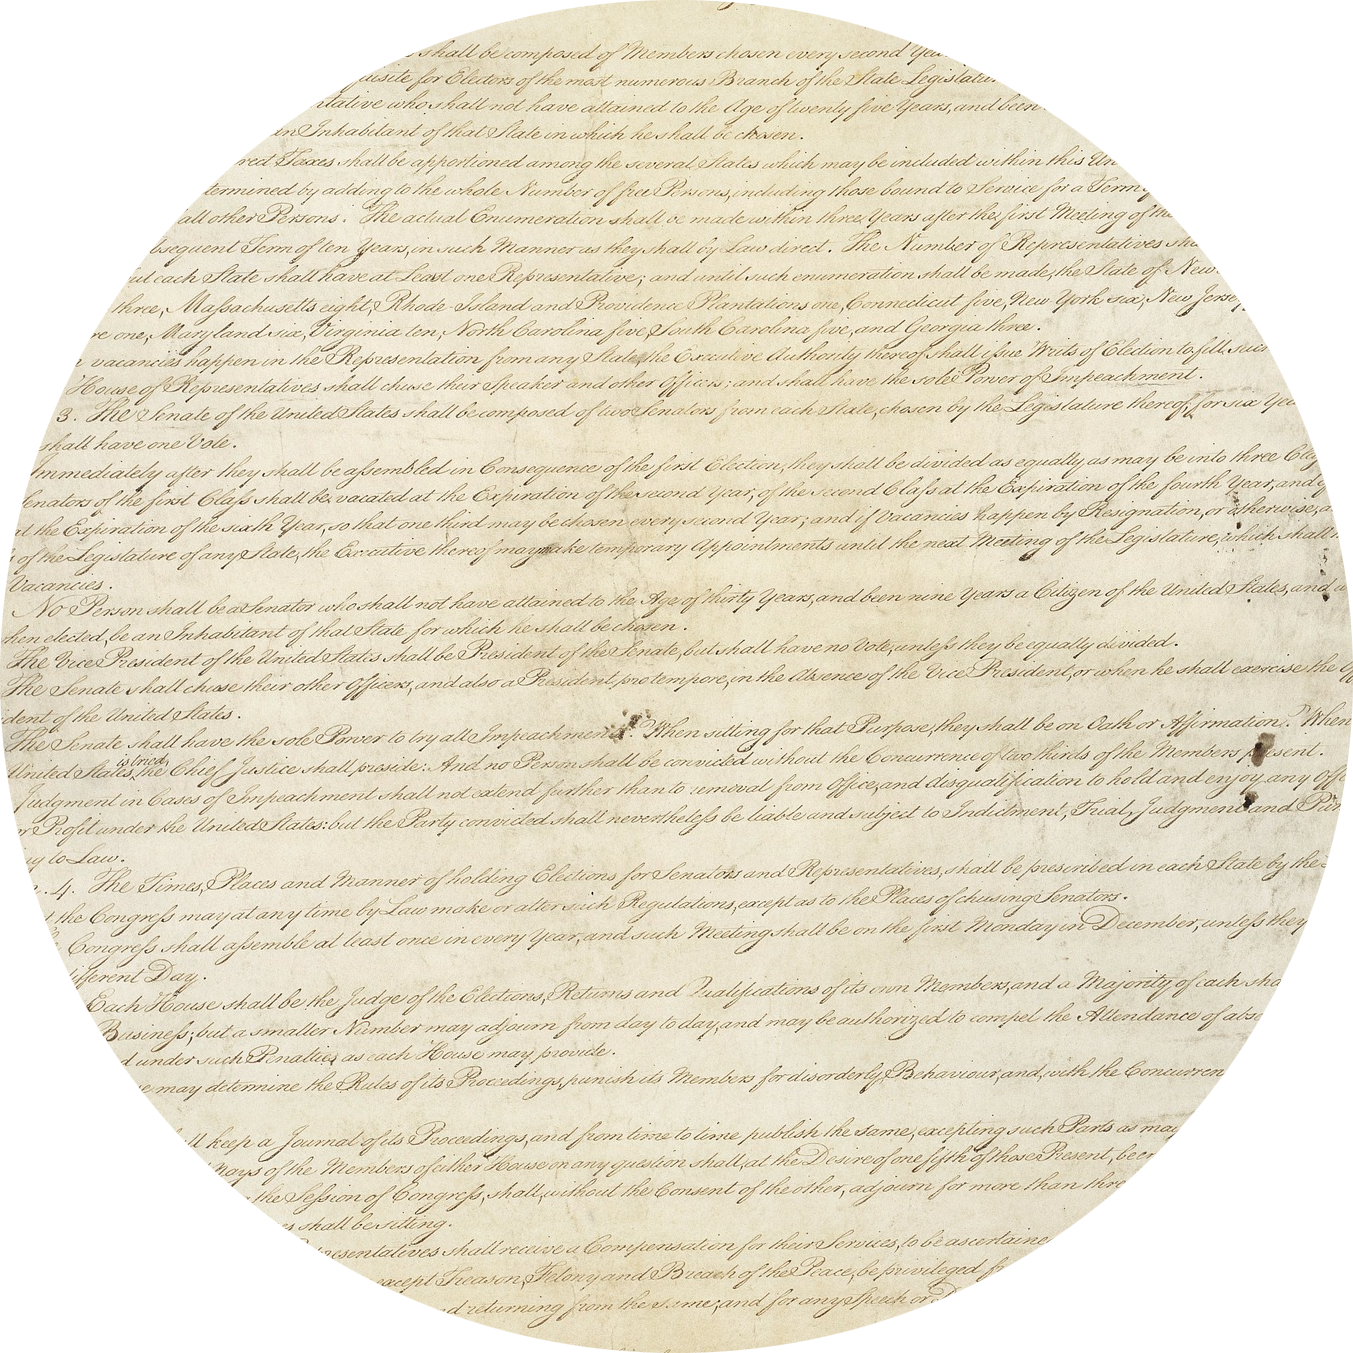 shall be composed of Members chosen every second Yea
uisite for Electors of the most numerous Branch of the State Legislatur
ntative who shall not have attained to the Age of twenty five Years, and been
an Inhabitant of that State in which he shall be chosen.
rect Taxes shall be apportioned among the several States which may be included within this Un
termined by adding to the whole Number of free Persons, including those bound to Service for a Term
all other Persons. The actual Enumeration shall be made within three Years after the first Meeting of the
bsequent Term of ten Years, in such Manner as they shall by Law direct. The Number of Representatives sha
but each State shall have at Least one Representative; and until such enumeration shall be made, the State of New
three, Massachusetts eight, Rhode-Island and Providence Plantations one, Connecticut five, New-York six, New Jersey
re one, Maryland six, Virginia ten, North Carolina five, South Carolina five, and Georgia three.
n vacancies happen in the Representation from any State, the Executive Authority thereof shall issue Writs of Election to fill such
House of Representatives shall chuse their Speaker and other Officers; and shall have the sole Power of Impeachment.
3. The Senate of the United States shall be composed of two Senators from each State, chosen by the Legislature thereof, for six Yea
shall have one Vote.
Immediately after they shall be assembled in Consequence of the first Election, they shall be divided as equally as may be into three Cla
enators of the first Class shall be vacated at the Expiration of the second Year, of the second Class at the Expiration of the fourth Year, and
at the Expiration of the sixth Year, so that one third may be chosen every second Year; and if Vacancies happen by Resignation, or otherwise,
of the Legislature of any State, the Executive thereof may make temporary Appointments until the next Meeting of the Legislature, which shall
Vacancies.
No Person shall be a Senator who shall not have attained to the Age of thirty Years, and been nine Years a Citizen of the United States, and
hen elected, be an Inhabitant of that State for which he shall be chosen.
The Vice President of the United States shall be President of the Senate, but shall have no Vote, unless they be equally divided.
The Senate shall chuse their other Officers, and also a President pro tempore, in the Absence of the Vice President, or when he shall exercise the Off
ident of the United States.
The Senate shall have the sole Power to try all Impeachments. When sitting for that Purpose, they shall be on Oath or Affirmation. When
is tried,
United States, the Chief Justice shall preside: And no Person shall be convicted without the Concurrence of two thirds of the Members present.
Judgment in Cases of Impeachment shall not extend further than to removal from Office, and disqualification to hold and enjoy any Offi
or Profit under the United States: but the Party convicted shall nevertheless be liable and subject to Indictment, Trial, Judgment and Pun
ng to Law.
. 4. The Times, Places and Manner of holding Elections for Senators and Representatives, shall be prescribed in each State by the
t the Congress may at any time by Law make or alter such Regulations, except as to the Places of chusing Senators.
Congress shall assemble at least once in every Year, and such Meeting shall be on the first Monday in December, unless they
ifferent Day.
Each House shall be the Judge of the Elections, Returns and Qualifications of its own Members, and a Majority of each sha
Business; but a smaller Number may adjourn from day to day, and may be authorized to compel the Attendance of abs
d under such Penalties as each House may provide.
e may determine the Rules of its Proceedings, punish its Members for disorderly Behaviour, and, with the Concurren
ll keep a Journal of its Proceedings, and from time to time publish the same, excepting such Parts as may
Nays of the Members of either House on any question shall, at the Desire of one fifth of those Present, be en
the Session of Congress, shall, without the Consent of the other, adjourn for more than thre
es shall be sitting.
presentatives shall receive a Compensation for their Services, to be ascertaine
except Treason, Felony and Breach of the Peace, be privileged f
d returning from the same; and for any Speech or D